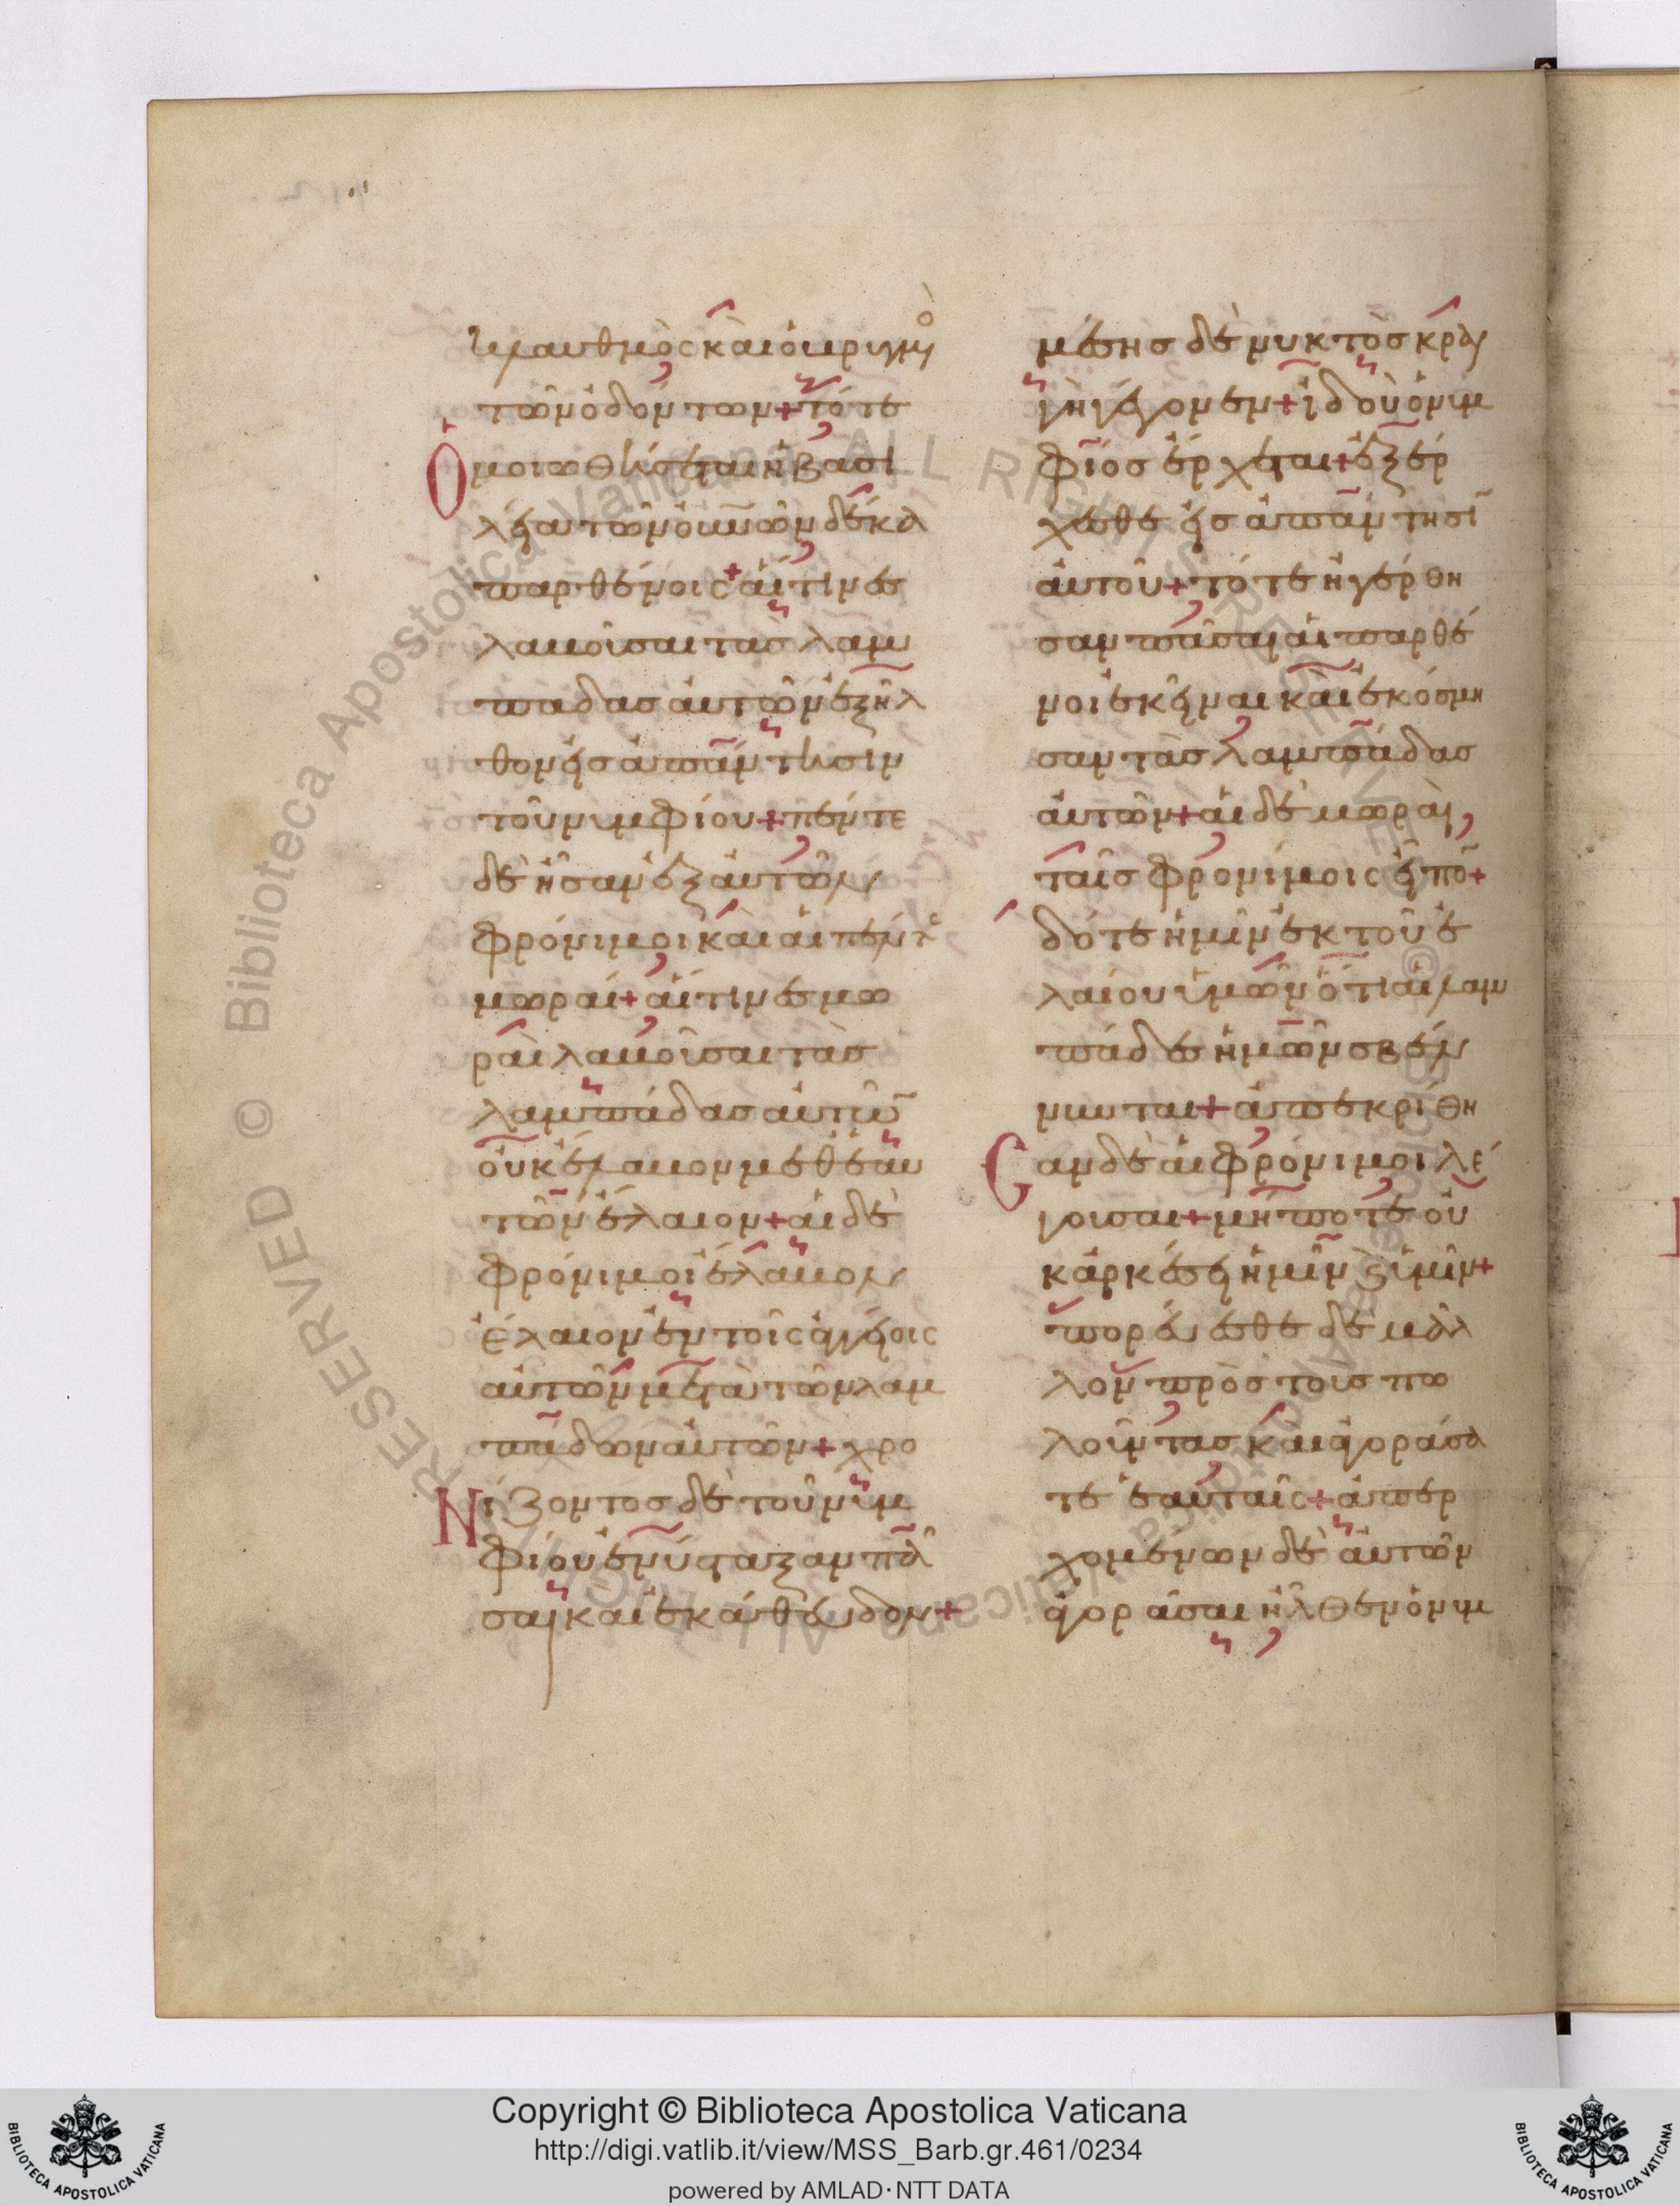 κλαυθμὸς καὶ ὁ βρυγμὸ
τῶν ὀδόντων + τότε
Ὁμοιωθήσεται ἡ βασι
λεία τῶν οὐνῶν δέκα
παρθένοις + αἵτινες
λαβοῦσαι τὰς λαμ
πάδας αὐτῶν ἐξῆλ
θον εἰς ἀπάντησιν
τοῦ νυμφίου + πέντε
δὲ ἦσαν ἐξ αὐτῶν
φρόνιμοι καὶ αἱ πέντε
μωραί + αἵτινες μω
ραὶ λαβοῦσαι τὰς
λαμπάδας αὐτῶ
οὐκ ἔλαβον μεθ' ἑαυ
τῶν ἔλαιον + αἱ δὲ
φρόνιμοι ἔλαβον
ἔλαιον ἐν τοῖς ἀγγείοις
αὐτῶν μετὰ τῶν λαμ
πάδων αὐτῶν + χρο
Νίζοντος δὲ τοῦ νυμ
φίου ἐνύσταξαν πᾶ
σαι καὶ ἐκάθευδον +
μέσης δὲ νυκτὸς κραυ
γὴ γέγονεν + ἰδοὺ ὁ νυμ
φίος ἔρχεται + ἐξέρ
χεσθε εἰς ἀπάντησῖ
αὐτοῦ + τότε ἠγέρθη
σαν πᾶσαι αἱ παρθέ
νοι ἐκεῖναι καὶ ἐκόσμη
σαν τὰς λαμπάδας
αὐτῶν + αἱ δὲ μωραὶ
ταῖς φρονίμοις εἶπο +
δότε ἡμῖν ἐκ τοῦ ἐ
λαίου ὑμῶν ὅτι αἱ λαμ
πάδες ἡμῶν σβέν
νυνται + ἀπεκρίθη
Σαν δὲ αἱ φρόνιμοι λέ
γουσαι + μήποτε οὐ
κ ἀρκέσει ἡμῖν ϗ ὑμῖν +
πορεύεσθε δὲ μᾶλ
λον πρὸς τοὺς πω
λοῦντας καὶ ἀγοράσα
τε ἑαυταῖς + ἀπερ
χομένων δὲ αὐτῶν
ἀγοράσαι ἦλθεν ὁ νυμ
Copyright © Biblioteca Apostolica Vaticana
http://digi.vatlib.it/view/MSS_Barb.gr.461/0234
powered by AMLAD·NTT DATA